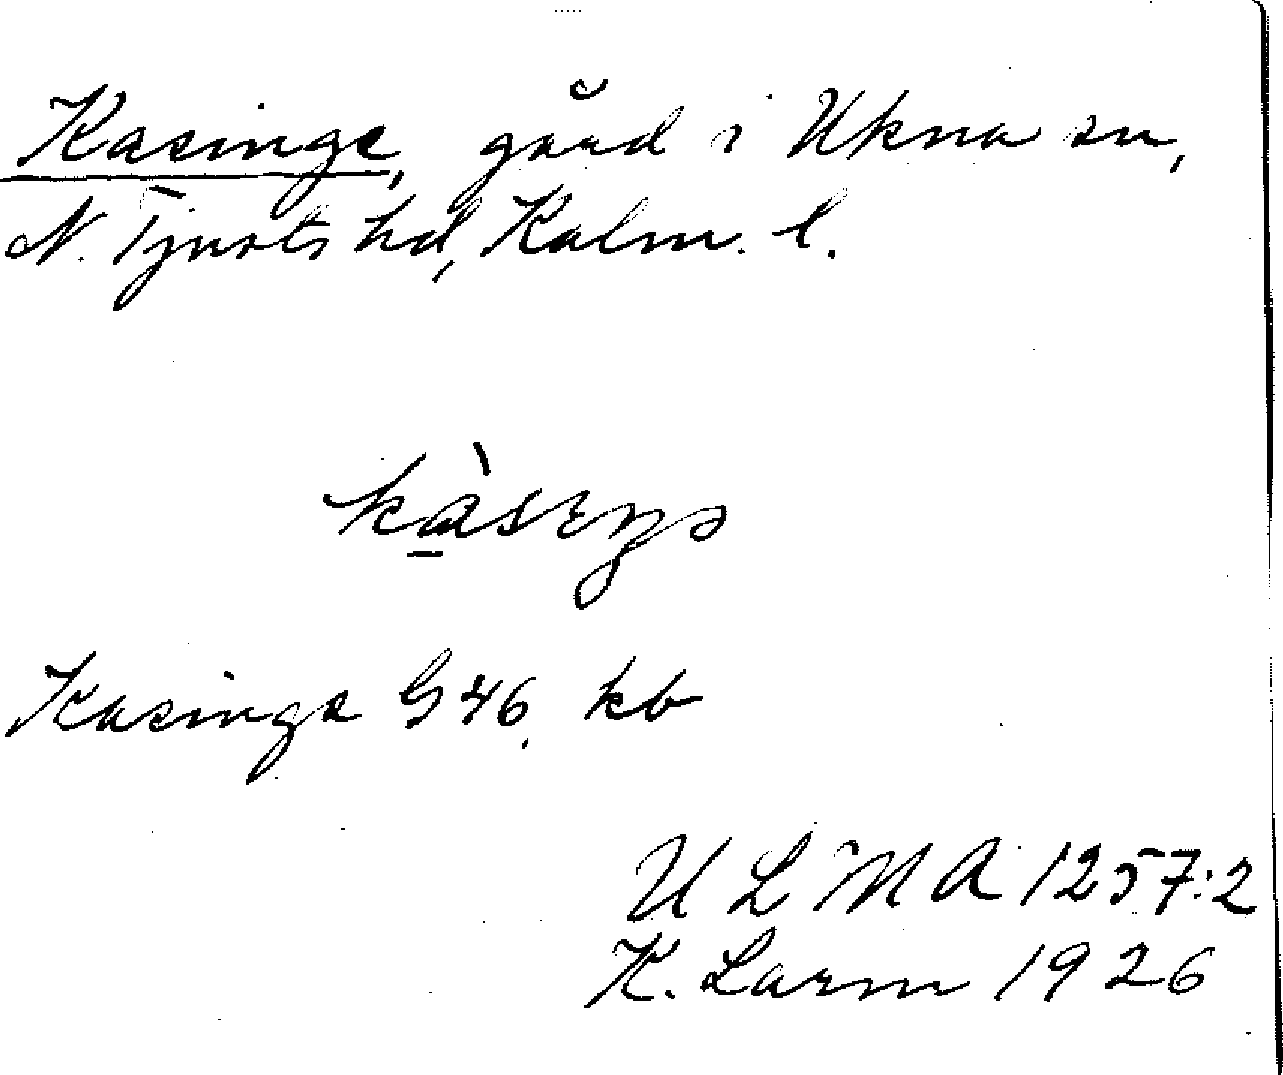 Kasinge, gård i Ukna sn,
N. Tjusts hd, Kalm. l.
kàsıŋə
Kasinge G 46, kb
ULMA 1257:2
K. Larm 1926